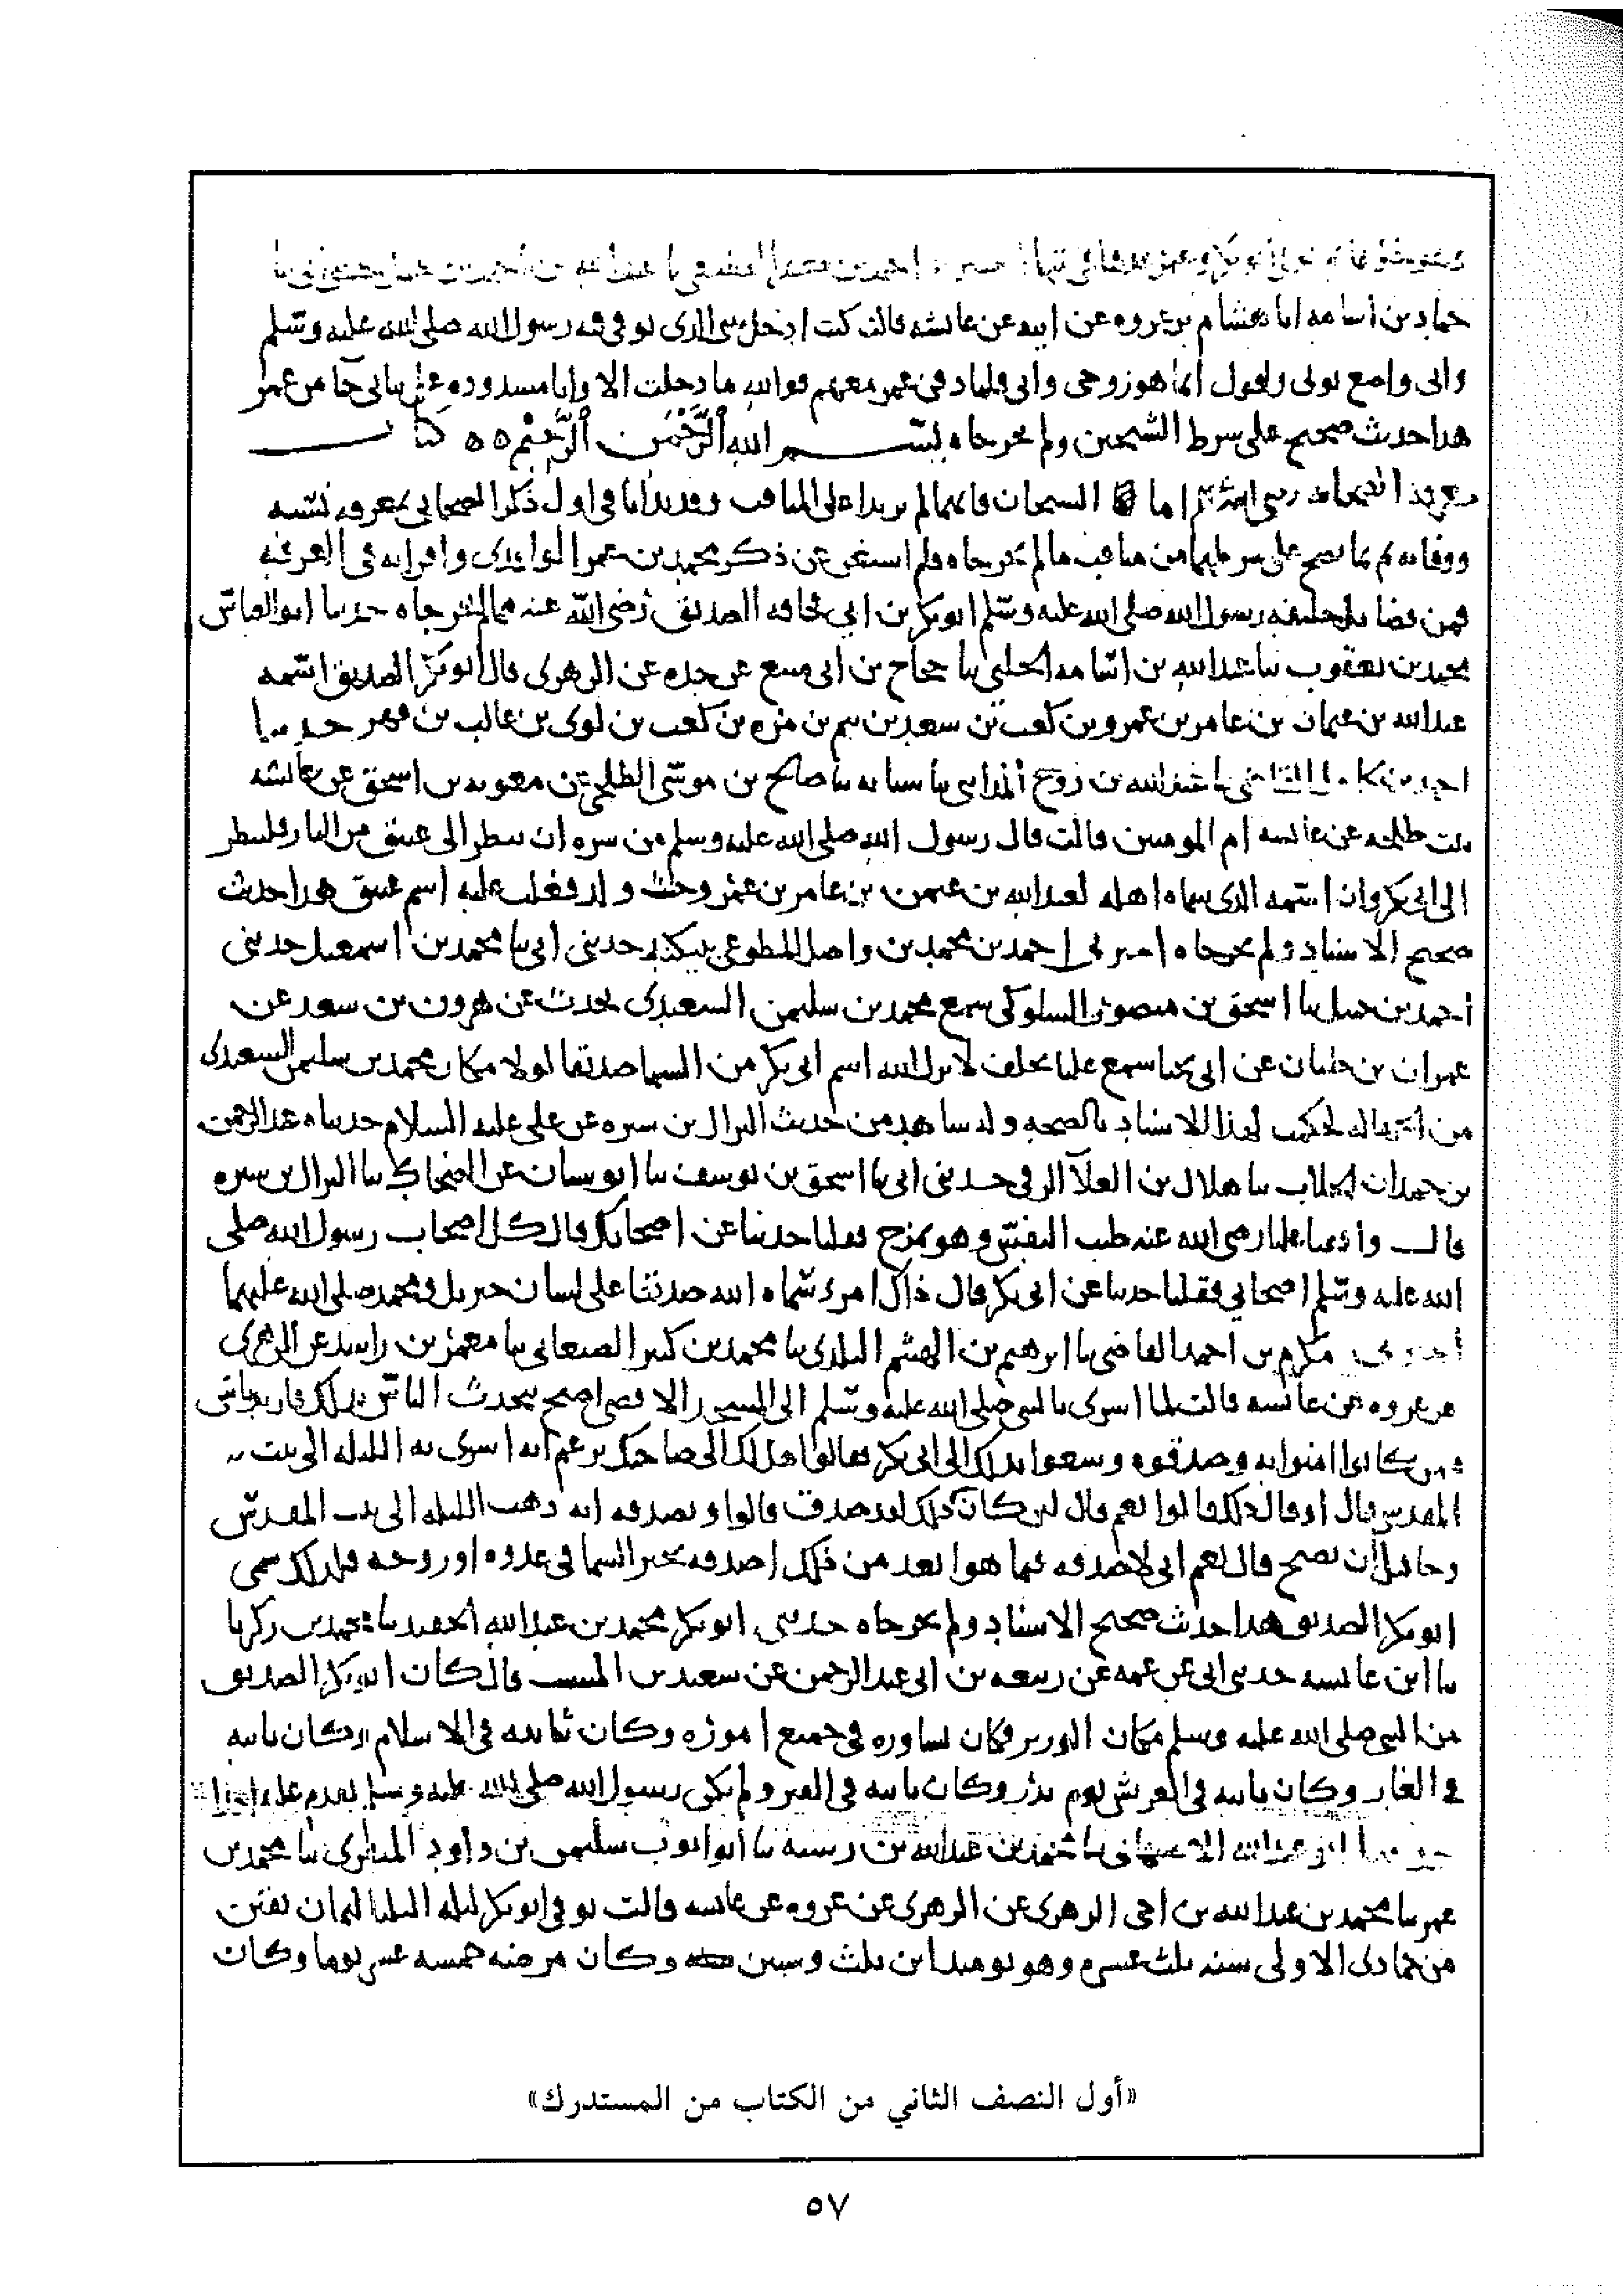 حماد بن أسامه انا هشام بن عروه عن ابيه عن عائشه قالت كنت ادخل بيتى الذى توفى فيه رسول الله صلى الله عليه وسلم
وابى واضع ثوبى واقول انما هو زوجى وابى فلما دفن عمر معهم فوالله ما دخلت الا وانا مسدوده على ثيابى حيا من عمر
هذا حديث صحيح على شرط الشيخين ولم يخرجاه بسم الله الرحمن الرحيم ٥٥ كتاب
معرفة الصحابه رضى الله عنهم اما الشيخان فانهما لم يزيدا على المناقب وقد بدانا فى اول ذكر الصحابى بمعرفه نسبه
ووفاته ثم بما يصح على شرطهما من مناقبه مما لم يخرجاه فلم استغن عن ذكر محمد بن عمر الواقدى واقرانه فى المعرفه
فمن فضايل خليفه رسول الله صلى الله عليه وسلم ابو بكر بن ابى قحافه الصديق رضى الله عنه مما لم يخرجاه حدثنا ابو العباس
محمد بن يعقوب ثنا عبد الله بن اسامه الحلبى ثنا حجاج بن ابى منيع عن جده عن الزهرى قال ابو بكر الصديق اسمه
عبد الله بن عثمان بن عامر بن عمرو بن كعب بن سعد بن تيم بن مره بن كعب بن لوى بن غالب بن فهر حدثنا
احمد بن كامل القاضى ثنا عبد الله بن روح المداينى ثنا شبابه ثنا صالح بن موسى الطلحى عن معويه بن اسحق عن عائشه
بنت طلحه عن عائشه ام المومنين قالت قال رسول الله صلى الله عليه وسلم من سره ان ينظر الى عتيق من النار فلينظر
الى ابى بكر وان اسمه الذى سماه اهله لعبد الله بن عثمن بن عامر بن عمرو حيث ولد فغلب عليه اسم عتيق هذا حديث
صحيح الاسناد ولم يخرجاه اخبرنى احمد بن محمد بن واصل المطوعى ببيكند حدثنى ابى ثنا محمد بن اسمعيل حدثنى
احمد بن حنبل ثنا اسحق بن منصور السلولى سمع محمد بن سليمن السعيدى يحدث عن هرون بن سعد عن
عمران بن ظبيان عن ابى يحيا سمع عليا يحلف لانزل الله اسم ابى بكر من السما صديقا لولا مكان محمد بن سليمن السعيدى
من الجهاله لحكمت لهذا الاسناد بالصحه وله شاهد من حديث النزال بن سبره عن على عليه السلام حدثناه عبد الرحمن
بن حمدان الجلاب ثنا هلال بن العلا الرقى حدثنى ابى ثنا اسحق بن يوسف ثنا ابو سنان عن الضحاك ثنا النزال بن سبره
قال وافقنا عليا رضى الله عنه طيب النفس وهو يمزح فقلنا حدثنا عن اصحابك قال كل اصحاب رسول الله صلى
الله عليه وسلم اصحابى فقلنا حدثنا عن ابى بكر قال ذاك امرء سماه الله صديقا على لسان جبريل ومحمد صلى الله عليهما
أخبرنى مكرم بن احمد القاضى ثنا ابرهيم بن الهيثم البلدى ثنا محمد بن كثير الصنعانى ثنا معمر بن راشد عن الزهرى
عن عروه عن عائشه قالت لما اسرى بالنبى صلى الله عليه وسلم الى المسجد الاقصى اصبح يتحدث الناس بذلك فارتد ناس
فمن كانوا امنوا به وصدقوه وسعوا بذلك الى ابى بكر فقالوا هل لك الى صاحبك يزعم انه اسرى به الليله الى بيت
المقدس قال او قال ذلك قالوا نعم قال لين كان قال ذلك لقد صدق قالوا وتصدقه انه ذهب الليله الى بيت المقدس
وجا قبل ان يصبح قال نعم انى لاصدقه فيما هو ابعد من ذلك اصدقه بخبر السما فى غدوه او روحه فلذلك سمى
ابو بكر الصديق هذا حديث صحيح الاسناد ولم يخرجاه حدثنى ابو بكر محمد بن عبد الله الحفيد ثنا محمد بن زكريا
ثنا ابن عائشه حدثنى ابى عن عمه عن ربيعه بن ابى عبد الرحمن عن سعيد بن المسيب قال كان ابو بكر الصديق
من النبى صلى الله عليه وسلم مكان الوزير فكان يشاوره فى جميع اموره وكان ثانيه فى الاسلام وكان ثانيه
فى الغار وكان ثانيه فى العريش يوم بدر وكان ثانيه فى القبر ولم يكن رسول الله صلى الله عليه وسلم يقدم عليه احدا
حدثنا ابو عبد الله الاصبهانى ثنا محمد بن عبد الله بن رسته ثنا ابو ايوب سليمن بن داود المنقرى ثنا محمد بن
عمر ثنا محمد بن عبد الله بن اخى الزهرى عن الزهرى عن عروه عن عائشه قالت توفى ابو بكر ليله الثلثا لثمان بقين
من جمادى الاولى سنه ثلث عشره وهو يوميد ابن ثلث وستين سنه وكان مرضه خمسه عشر يوما وكان
«أول النصف الثاني من الكتاب من المستدرك»
٥٧